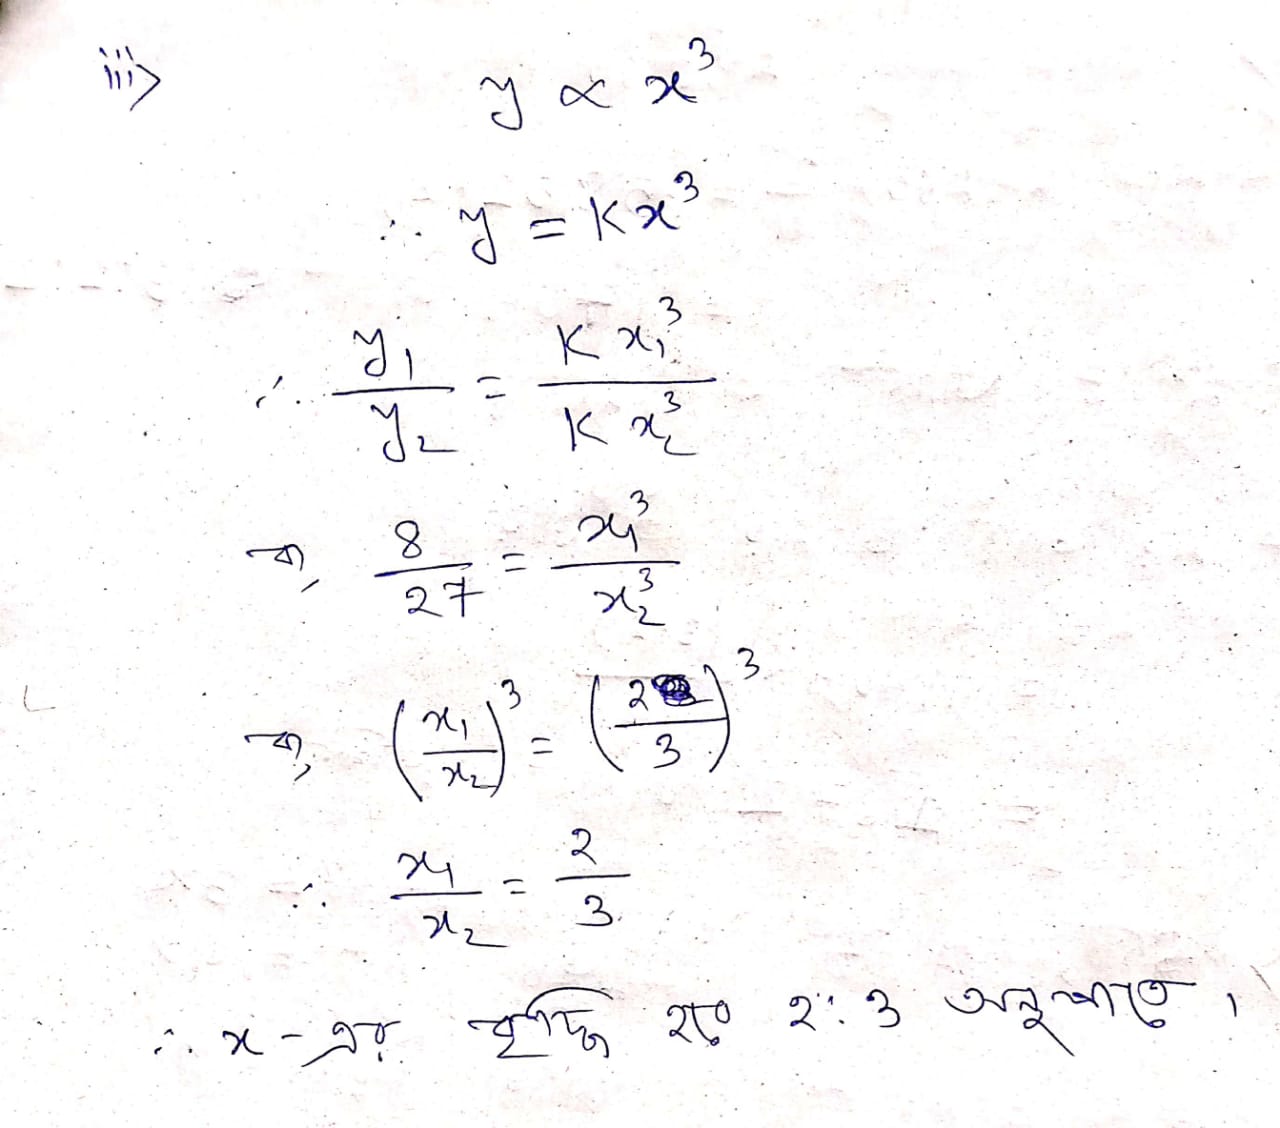 iii> y ∝ x³
∴ y = Kx³
∴ y₁/y₂ = K x₁³/K x₂³
বা, 8/27 = x₁³/x₂³
বা, (x₁/x₂)³ = (2/3)³
∴ x₁/x₂ = 2/3
∴ x-এর বৃদ্ধি হবে 2:3 অনুপাতে।